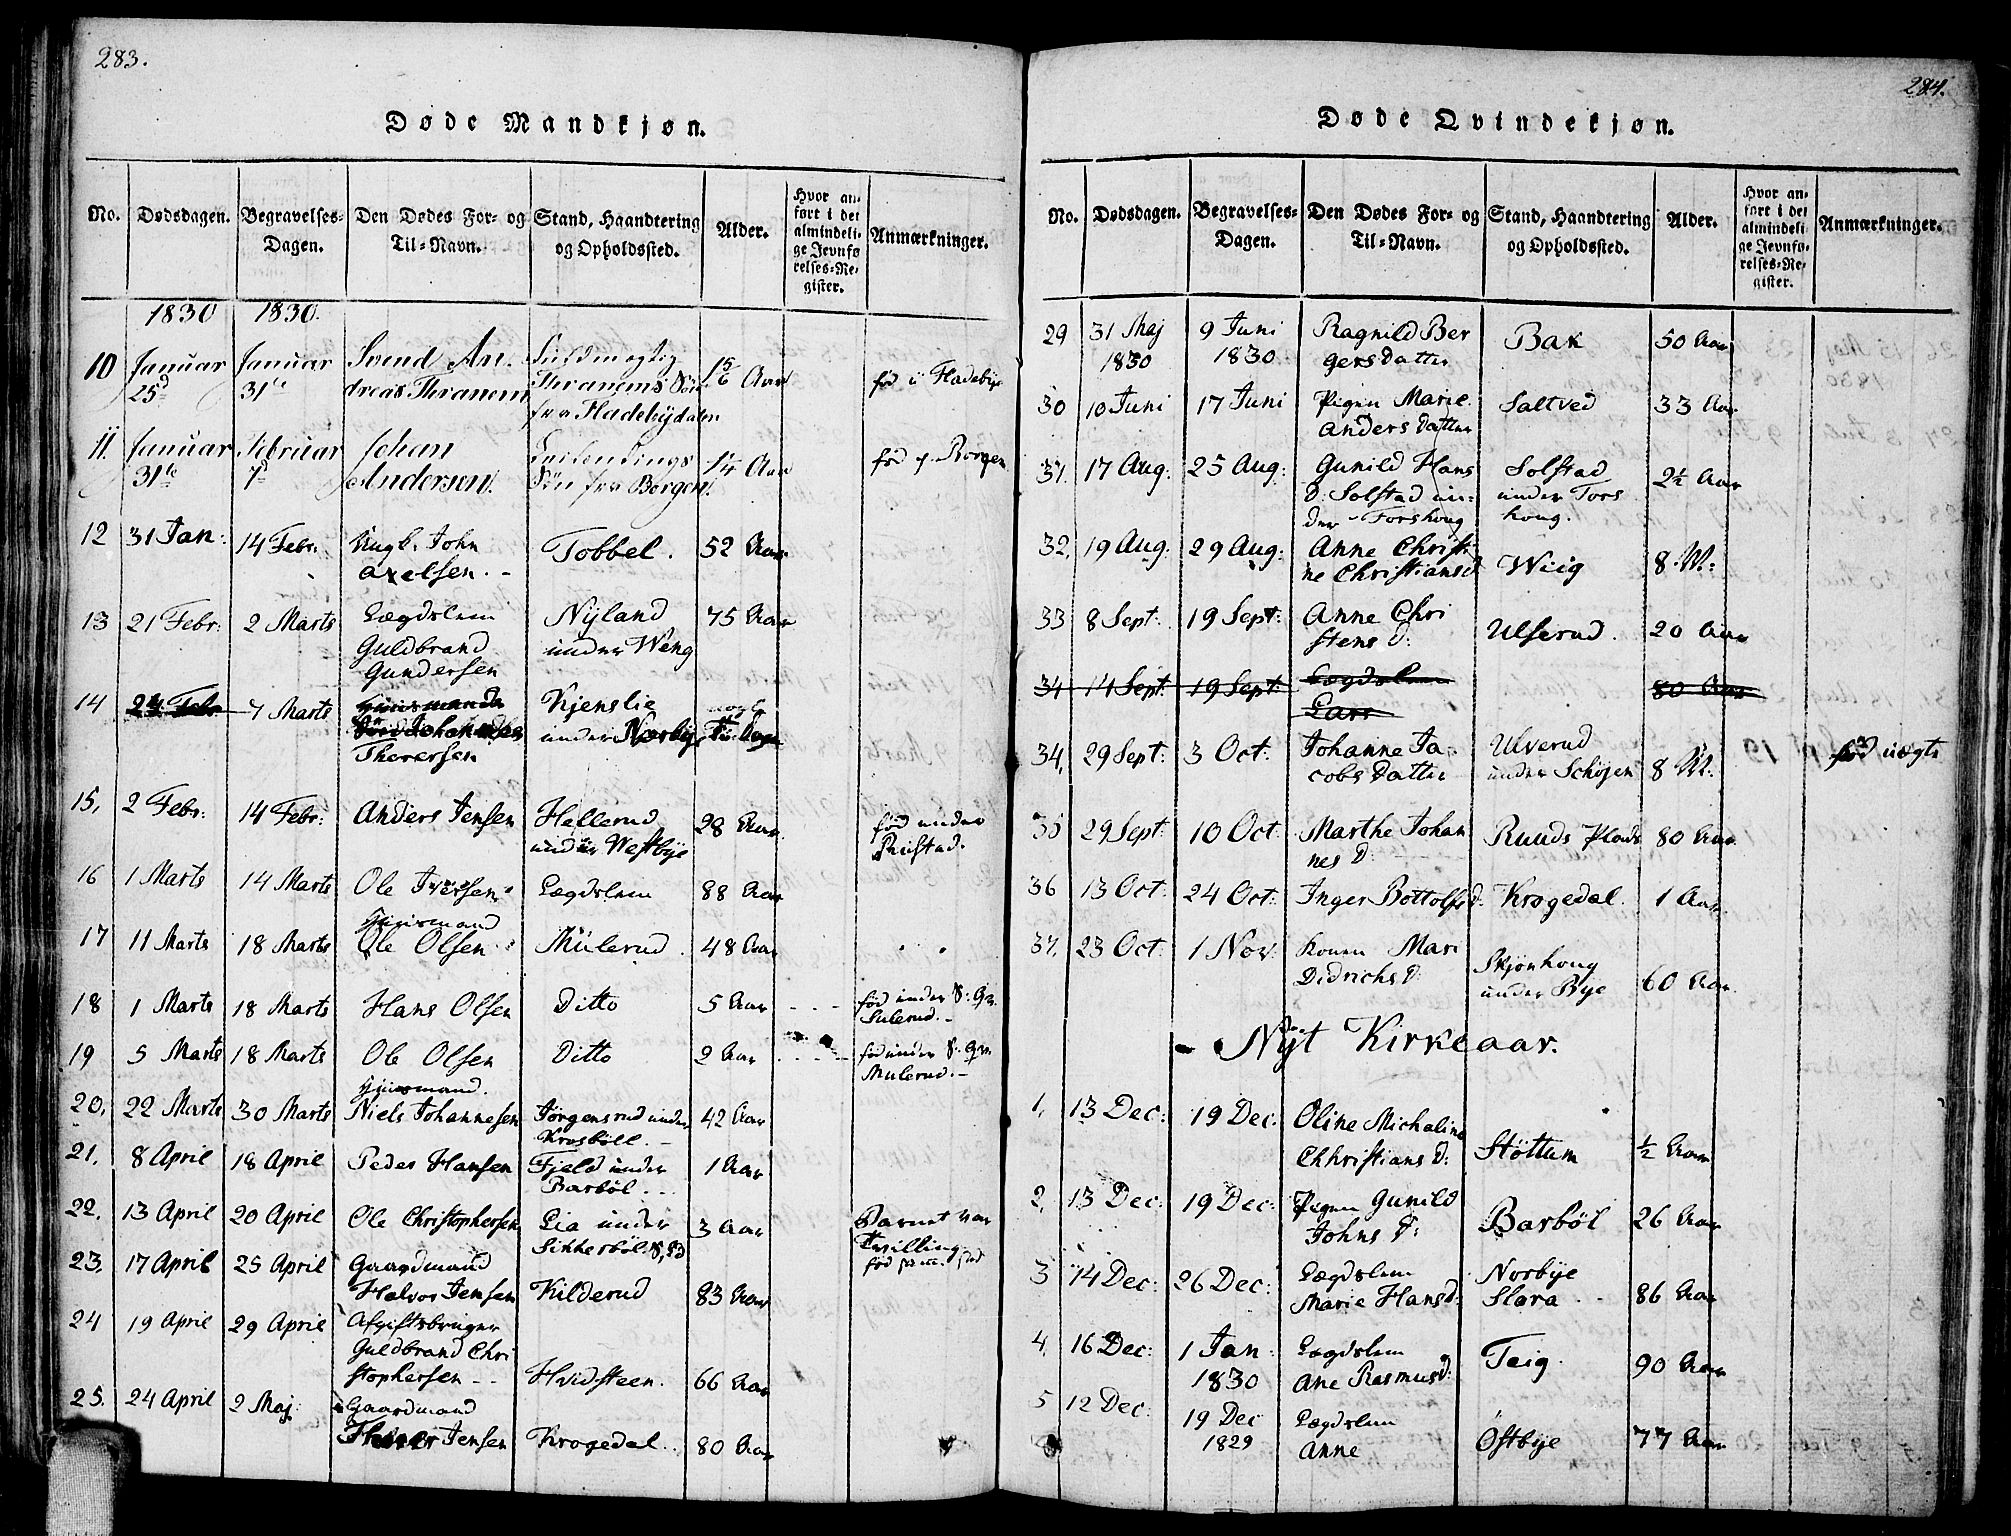 283.
Døde Mandkjøn.
No. Dødsdagen. Begravelses-Dagen. Den Dødes For- og Til-Navn. Stand, Haandtering og Opholdssted. Alder. Hvor anført i det almindelige Jevnførelses-Register. Anmærkninger.
1830 1830.
10 Januar Januar Svend An-
25d 31te dreas Thranem fra Fladebydalen Aar fød i Fladebye
11 Januar Februar Johan
31te 7d Andersen. Søn fra Borgen. Aar fød p. Borgen
12 31 Jan: 14 Febr: Ungk. John Tobbel. 52 Aar
Axelsen. -
13 21 Febr: 2 Marts Lægdslem Nyland 75 Aar
Guldbrand under Weng
Gundersen
14 24 Febr 7 Marts Huusmands Kjenslie
under Norbye
Thorersen
15, 2 Febr: 14 Febr: Anders Jensen Hellerud 28 Aar fød under
under Westbye
16 1 Marts 14 Marts Ole Iversen Lægdslem 88 Aar
Huusmand
17 11 Marts 18 Marts Ole Olsen Mulerud. 48 Aar
18 1 Marts 18 Marts Hans Olsen Ditto 5 Aar fød under S: Gr.
Sulerud.-
19 5 Marts 18 Marts Ole Olsen Ditto 2 Aar fød under S: Gr.
Mulerud.-
Huusmand.
20, 22 Marts 30 Marts Niels Johannesen Jørgensrud under 42 Aar
Krosbøll. -
21, 8 April 18 April Peder Hansen Fjeld under 1 Aar
Barbøl. --
22, 13 April 20 April Ole Christophersen Lia under 3 Aar Barnet var
Sikkerbøl Tvilling
23, 17 April 25 April Gaardmand fød
Halvor Jensen Kilderud 83 Aar
24 19 April 29 April Afgiftsbruger
Guldbrand Chri
stophersen -- Hvidsteen. 66 Aar
25. 24 April 2 Maj: Gaardmand
Jensen Krogedal. 80 Aar
284.
Døde Qvindekjøn.
No. Dødsdagen. Begravelses-Dagen. Den Dødes For- og Til-Navn. Stand, Haandtering og Opholdssted. Alder. Hvor anført i det almindelige Jevnførelses-Register. Anmærkninger.
29 31 Maj 9 Juni Ragnild Ber Bak 50 Aar
1830 1830 gers datter
30 10 Juni 17 Juni Pigen Marie Saltved 33 Aar
Anders datter
31. 17 Aug: 25 Aug: Gunild Hans Solstad 2½ Aar
D: Solstad un- under Fors
der Forshoug houg.
32, 19 Aug: 29 Aug: Anne Christi- Wiig 8 M:
ne Christians d
33 8 Sept: 19 Sept: Anne Chri Ulserud. 20 Aar
stens D:
34 14 Sept: 19 Sept: Lægdslem 80 Aar
Lars
34, 29 Sept: 3 Oct: Johanne Ja- Ulverud 8 M: fød uægte
cobs Datter under Schøjen
35 29 Sept: 10 Oct: Marthe Johan Ruuds Plads 80 Aar
nes D:
36 13 Oct: 24 Oct: Inger Bottolfs d: Krogedal. 1 Aar
37, 23 Oct: 1 Nov: Konen Mari Skjønhoug 60 Aar.
Didrichs D: under Bye
Nÿt Kirkeaar.
1, 13 Dec: 19 Dec: Oline Michaline Støttum ½ Aar
Chhristians D:
2, 13 Dec: 19 Dec: Pigen Gunild Barbøl 26 Aar
Johns D:
3 14 Dec: 26 Dec: Lægdslem Norbye 86 Aar
Marie Hansd: Slora
4, 16 Dec: 1 Jan: Lægdslem Teig. 90 Aar
1830 Ane Rasmusd:
5 12 Dec: 19 Dec Lægdslem Østbye 77 Aar
1829 Anne